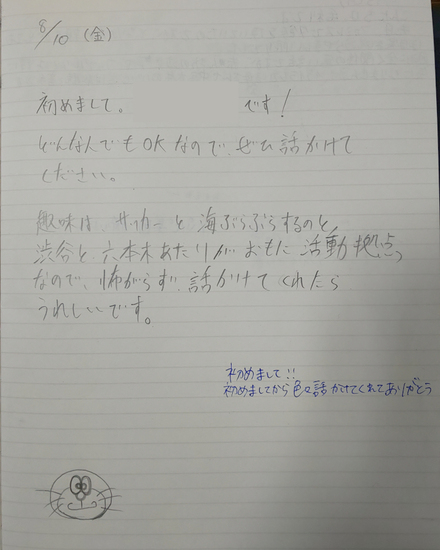 8/10 (金)
初めまして。 です!
どんな人でもOKなので、ぜひ話かけて
ください。
趣味は、サッカーと海ぶらぶらするのと、
渋谷と六本木あたりがおもに活動拠点
なので、怖がらず、話かけてくれたら
うれしいです。
初めまして!!
初めましてから色々話かけてくれてありがとう